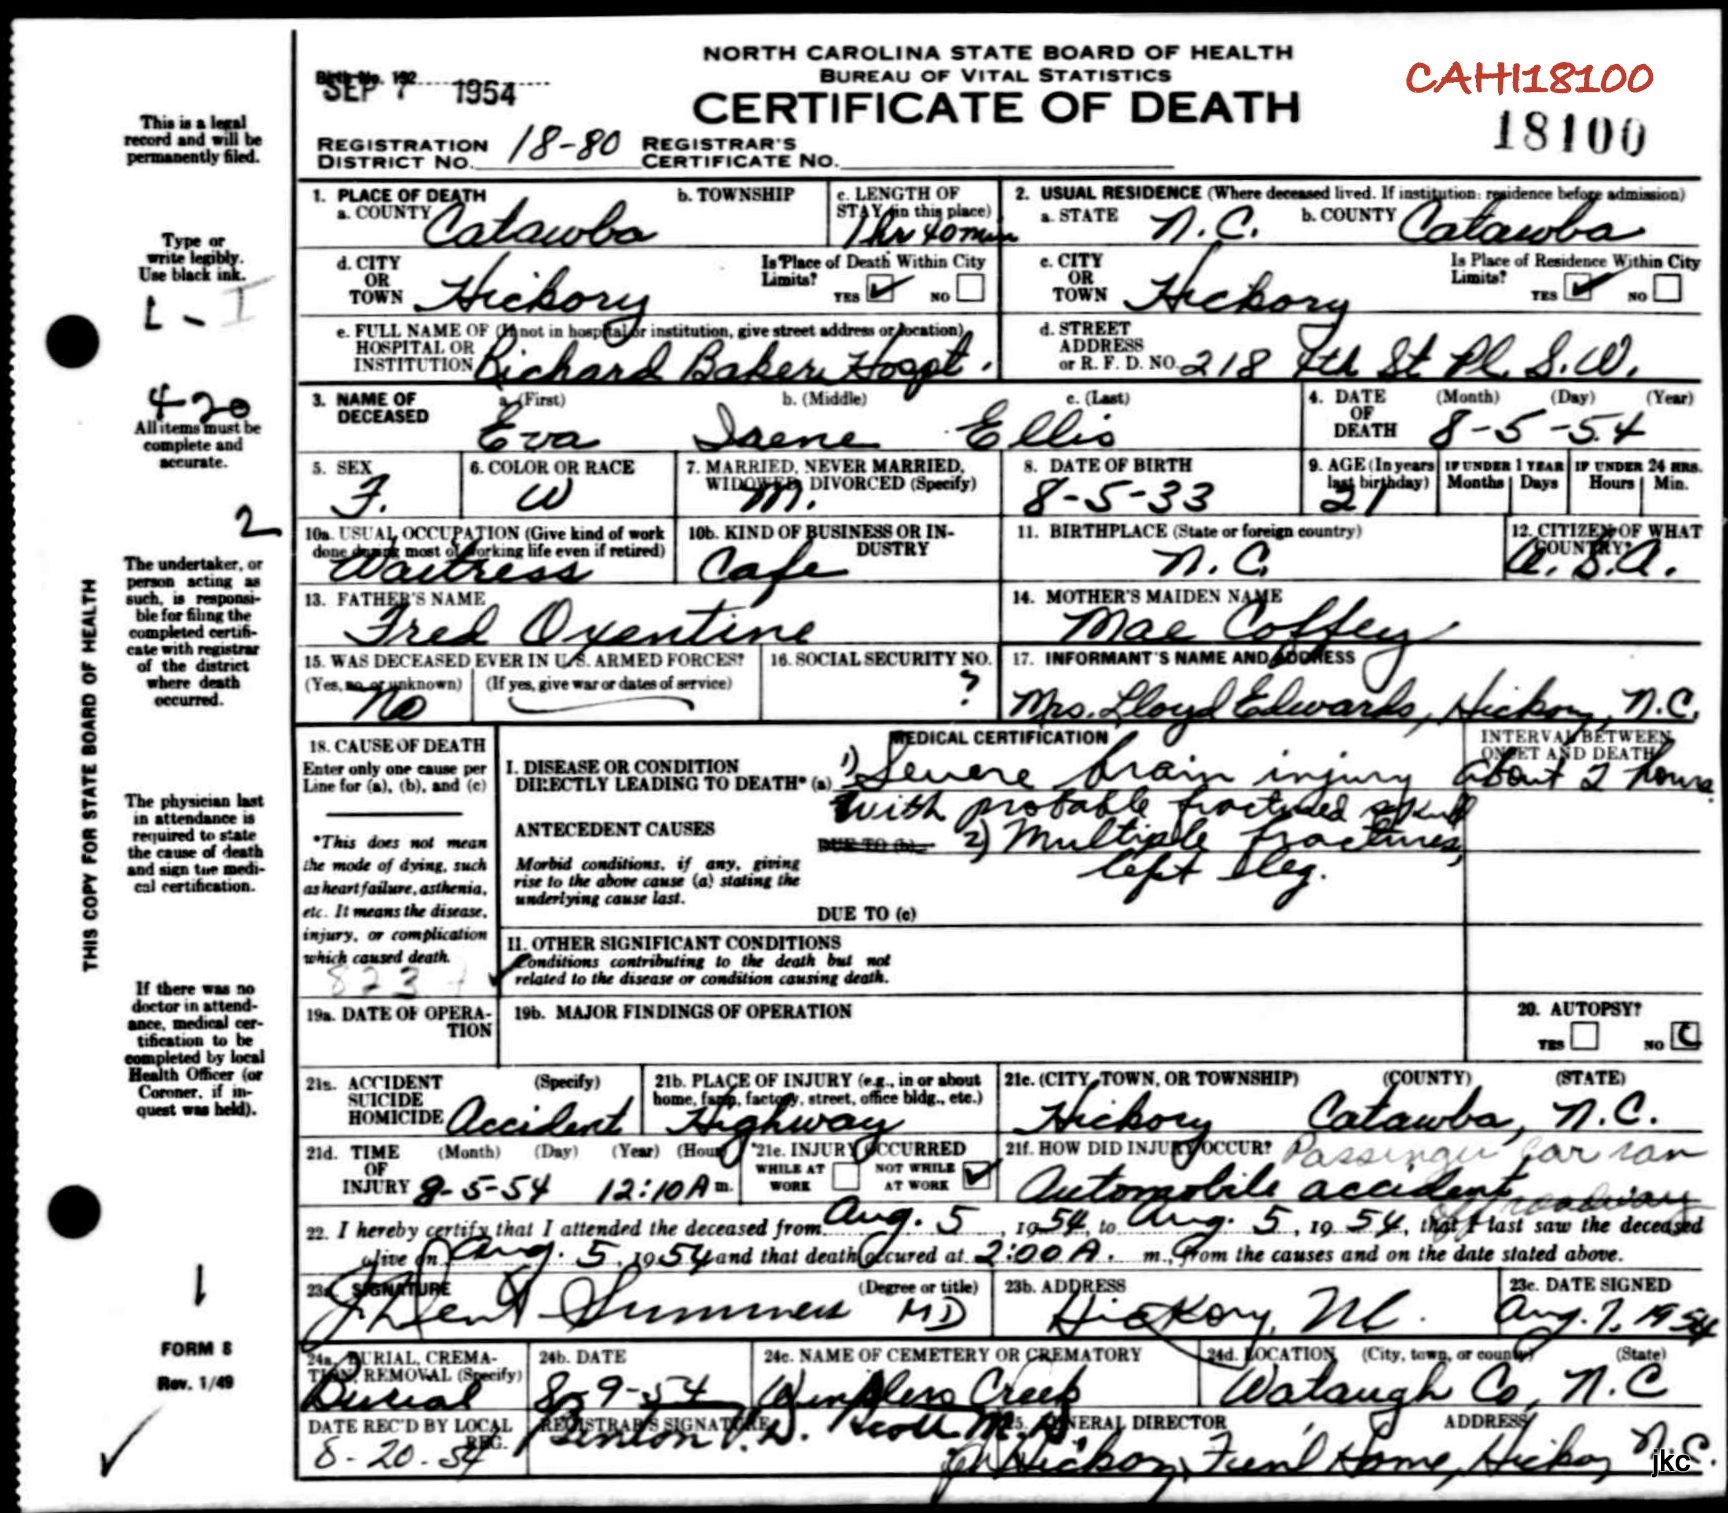 NORTH CAROLINA STATE BOARD OF HEALTH
BUREAU OF VITAL STATISTICS
CERTIFICATE OF DEATH
CAHI18100
18100
Birth No. 132
SEP 7 1954
REGISTRATION DISTRICT NO. 18-80 REGISTRAR'S CERTIFICATE NO.
This is a legal
record and will be
permanently filed.
Type or
write legibly.
Use black ink.
420
All items must be
complete and
accurate.
2
The undertaker, or
person acting as
such, is responsi-
ble for filing the
completed certifi-
cate with registrar
of the district
where death
occurred.
THIS COPY FOR STATE BOARD OF HEALTH
The physician last
in attendance is
required to state
the cause of death
and sign the medi-
cal certification.
If there was no
doctor in attend-
ance, medical cer-
tification to be
completed by local
Health Officer (or
Coroner, if in-
quest was held).
1
FORM 8
Rev. 1/49
1. PLACE OF DEATH
a. COUNTY Catawba
b. TOWNSHIP
c. LENGTH OF STAY (in this place) 1 hr 40 min
2. USUAL RESIDENCE (Where deceased lived. If institution: residence before admission)
a. STATE N.C. b. COUNTY Catawba
d. CITY OR TOWN Hickory
Is Place of Death Within City Limits? YES ✓ NO
c. CITY OR TOWN Hickory
Is Place of Residence Within City Limits? YES ✓ NO
e. FULL NAME OF (If not in hospital or institution, give street address or location)
HOSPITAL OR INSTITUTION Richard Baker Hospt.
d. STREET ADDRESS or R. F. D. NO. 218 4th St. Pl. S.W.
3. NAME OF DECEASED
a. (First) b. (Middle) c. (Last)
Eva Irene Ellis
4. DATE OF DEATH (Month) (Day) (Year)
8-5-54
5. SEX F.
6. COLOR OR RACE W
7. MARRIED, NEVER MARRIED, WIDOWED, DIVORCED (Specify) M.
8. DATE OF BIRTH 8-5-33
9. AGE (In years last birthday) 21
IF UNDER 1 YEAR Months Days
IF UNDER 24 HRS. Hours Min.
10a. USUAL OCCUPATION (Give kind of work done during most of working life even if retired)
Waitress
10b. KIND OF BUSINESS OR INDUSTRY
Cafe
11. BIRTHPLACE (State or foreign country)
N.C.
12. CITIZEN OF WHAT COUNTRY?
U.S.A.
13. FATHER'S NAME
Fred Oxentine
14. MOTHER'S MAIDEN NAME
Mae Coffey
15. WAS DECEASED EVER IN U.S. ARMED FORCES?
(Yes, no, or unknown) (If yes, give war or dates of service)
No
16. SOCIAL SECURITY NO.
?
17. INFORMANT'S NAME AND ADDRESS
Mrs. Lloyd Edwards, Hickory, N.C.
18. CAUSE OF DEATH
Enter only one cause per
Line for (a), (b), and (c)
*This does not mean
the mode of dying, such
as heart failure, asthenia,
etc. It means the disease,
injury, or complication
which caused death.
823
MEDICAL CERTIFICATION
INTERVAL BETWEEN ONSET AND DEATH
I. DISEASE OR CONDITION
DIRECTLY LEADING TO DEATH* (a) 1) Severe brain injury about 2 hours
with probable fractured skull
ANTECEDENT CAUSES
DUE TO (b) 2) Multiple fractures,
left leg.
Morbid conditions, if any, giving
rise to the above cause (a) stating the
underlying cause last.
DUE TO (c)
II. OTHER SIGNIFICANT CONDITIONS
Conditions contributing to the death but not
related to the disease or condition causing death.
19a. DATE OF OPERATION
19b. MAJOR FINDINGS OF OPERATION
20. AUTOPSY?
YES NO
21a. ACCIDENT SUICIDE HOMICIDE (Specify)
Accident
21b. PLACE OF INJURY (e.g., in or about home, farm, factory, street, office bldg., etc.)
Highway
21c. (CITY, TOWN, OR TOWNSHIP) (COUNTY) (STATE)
Hickory Catawba, N.C.
21d. TIME OF INJURY (Month) (Day) (Year) (Hour)
8-5-54 12:10 A m.
21e. INJURY OCCURRED
WHILE AT WORK NOT WHILE AT WORK ✓
21f. HOW DID INJURY OCCUR? Passenger car ran
Automobile accident off roadway
22. I hereby certify that I attended the deceased from Aug. 5, 1954, to Aug. 5, 1954, that I last saw the deceased
alive on Aug. 5, 1954 and that death occured at 2:00 A. m., from the causes and on the date stated above.
23a. SIGNATURE (Degree or title)
Summers MD
23b. ADDRESS
Hickory, NC.
23c. DATE SIGNED
Aug. 7, 1954
24a. BURIAL, CREMATION, REMOVAL (Specify)
Burial
24b. DATE
8-9-54
24c. NAME OF CEMETERY OR CREMATORY
Winklers Creek
24d. LOCATION (City, town, or county) (State)
Wataugh Co, N.C
DATE REC'D BY LOCAL REG.
8-20-54
REGISTRAR'S SIGNATURE
25. FUNERAL DIRECTOR ADDRESS
Hickory Funl Home, Hickory N.C.
jkc